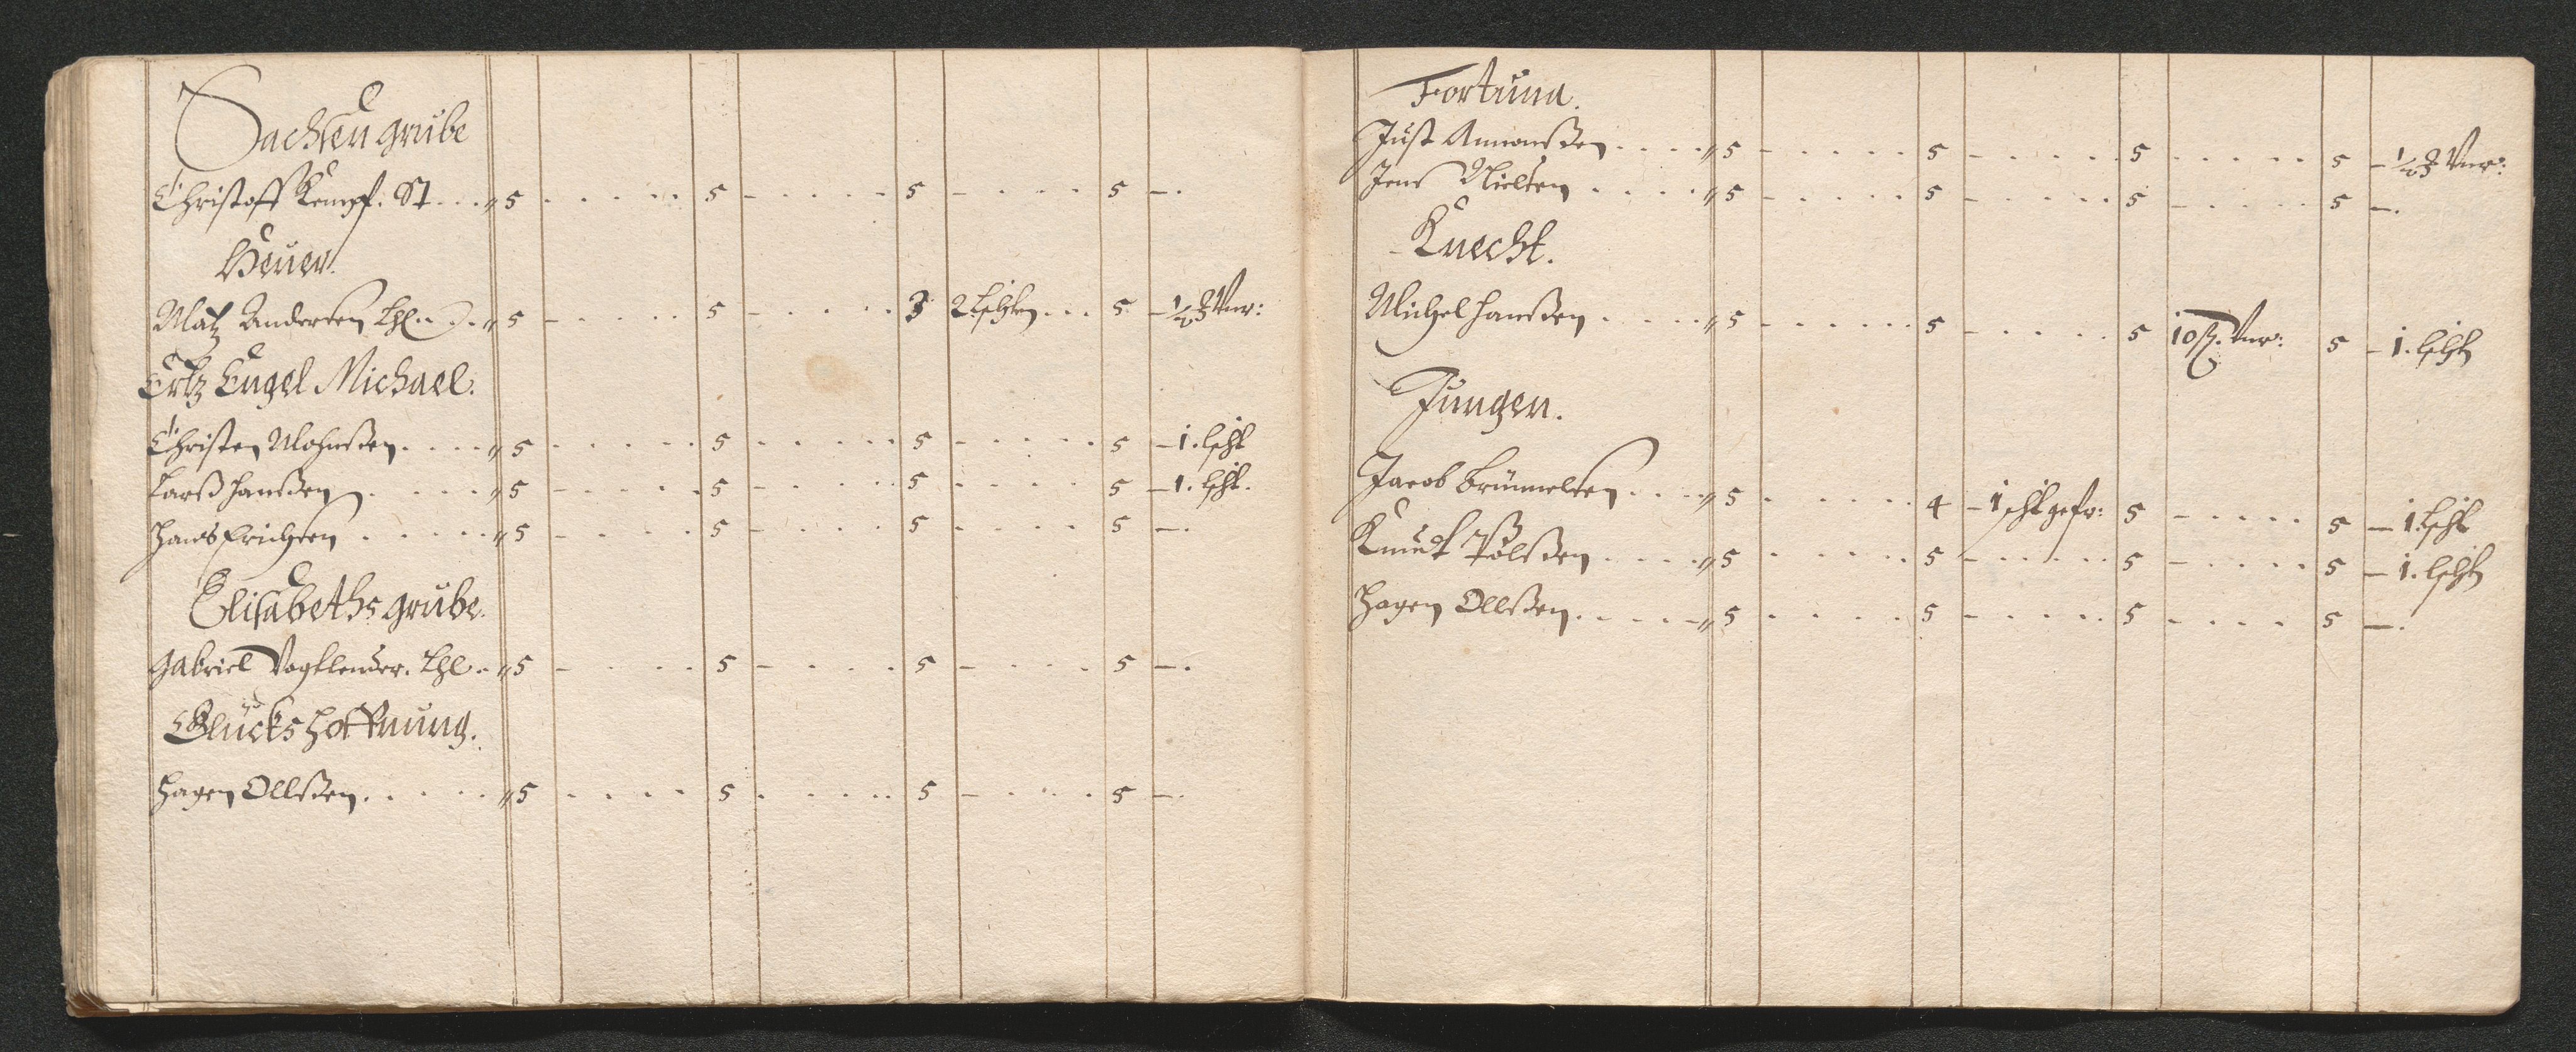 Sachsen grube
Christoff Kempf. St... " 5 - - - - 5 - - - - 5 - - - - 5 -.
Heuer.
Matz Andersen Lhl... " 5 - - - - 5 - - - - 3 2 lschten... 5 - ½
Ertz Engel Michael.
Christen Mohnßen.... " 5 - - - - 5 - - - - 5 - - - - 5 - 1. lscht
Larß Hanßen..... " 5 - - - - 5 - - - - 5 - - - - 5 - 1. lscht.
Hans Erichsen..... " 5 - - - - 5 - - - - 5 - - - - 5 -.
Elisabeths grube.
Gabriel Vogtlender. Lhl. " 5 - - - - 5 - - - - 5 - - - - 5 -.
Glücks hoffnung.
Hagen Ollßen..... " 5 - - - - 5 - - - - 5 - - - - 5 -.
Fortuna.
Just Amonßen.... " 5 - - - - 5 - - - - 5 - - - - 5 - ½
Jens Nielsen.... " 5 - - - - 5 - - - - 5 - - - - 5 -.
Knecht.
Michel Hanßen.... " 5 - - - - 5 - - - - 5 10 ß. 5 - 1. lscht
Jungen.
Jacob Brünnelsen.... " 5 - - - - 4 - 1 scht gefr: 5 - - - - 5 - 1 lscht
Knut Pölßen.... " 5 - - - - 5 - - - - 5 - - - - 5 - 1. lscht
Hagen Ollßen.... " 5 - - - - 5 - - - - 5 - - - - 5 -.